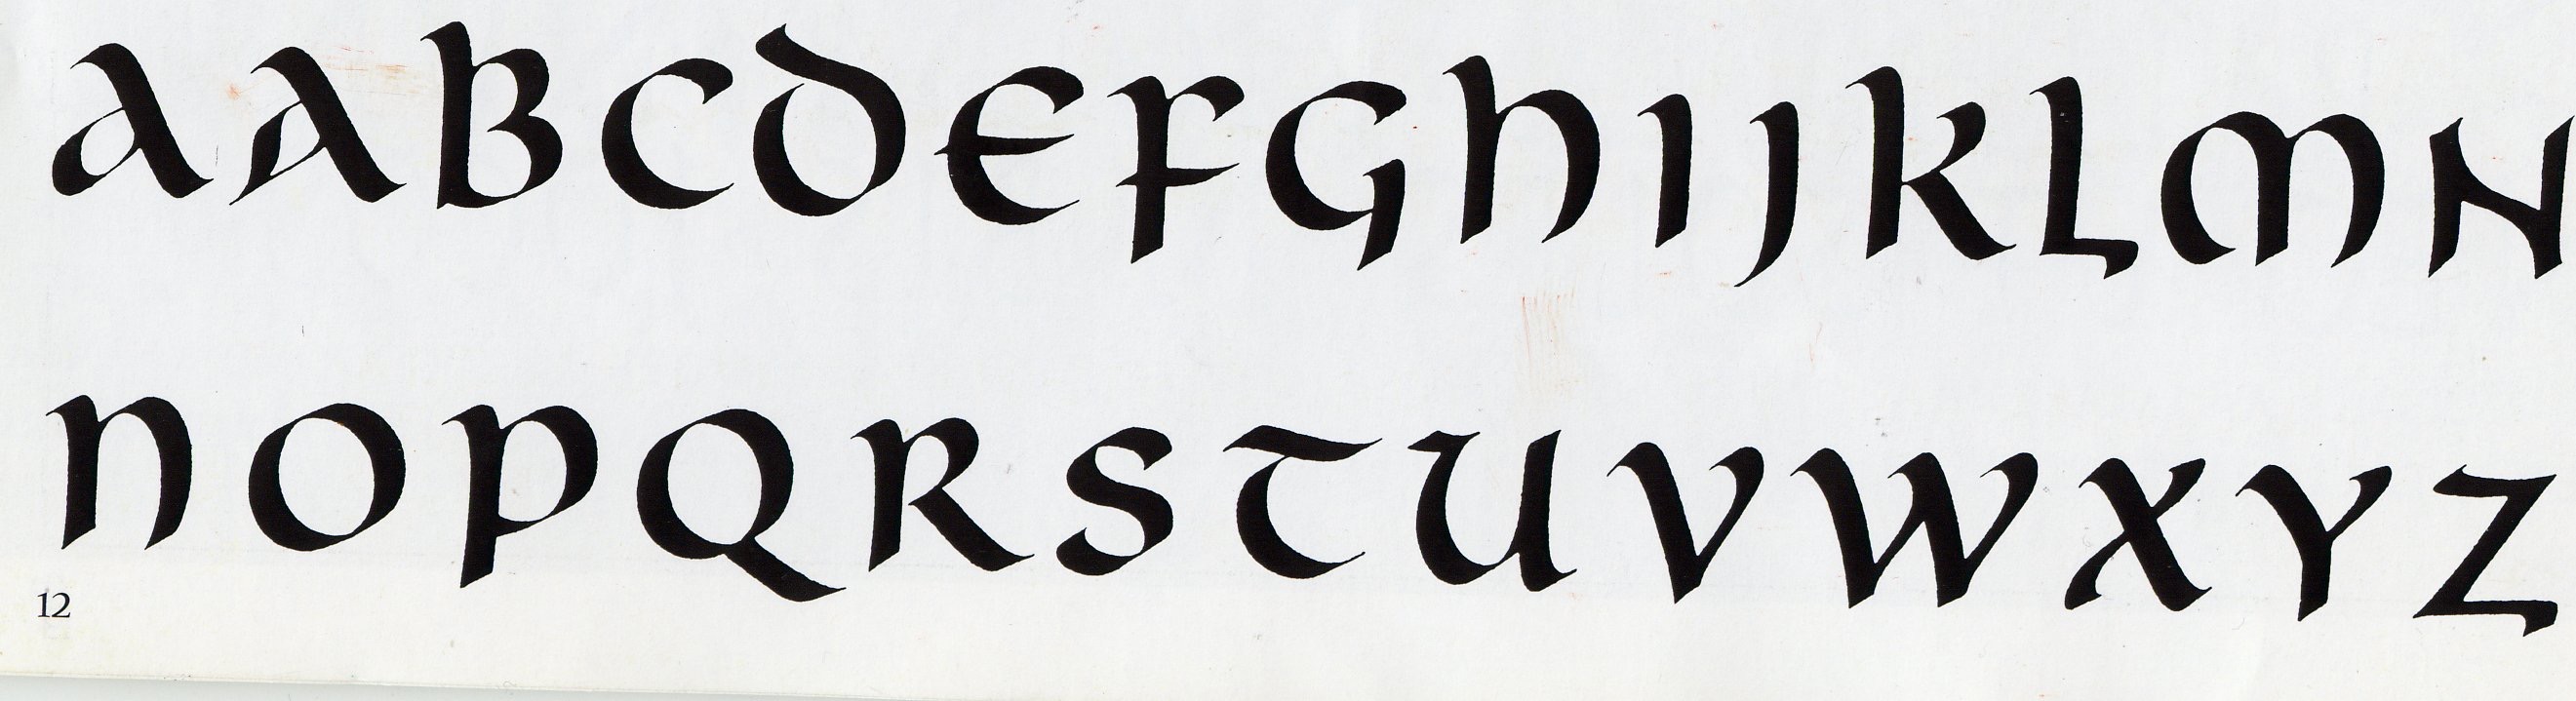 AABCDEFGHIJKLMN
NOPQRSTUVWXYZ
12